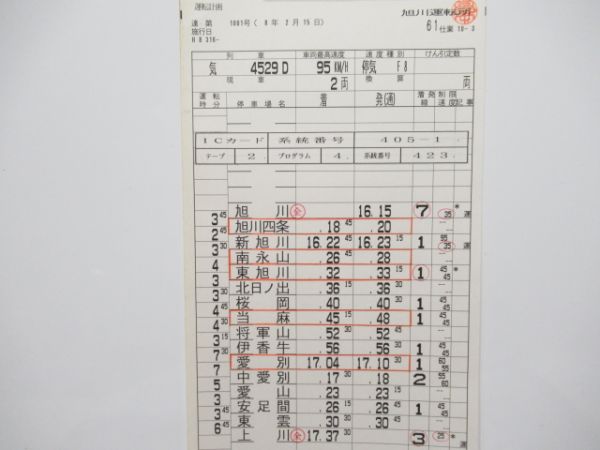 運転計画
達第 1001号 ( 8年 2月15日)
施行日
H 8 310-
旭川運転所
61 仕業 10-3
列車 車両最高速度 速度種別 けん引定数
気 4529D 95 KM/H 停気 F8
現車 換算
2両 両
運転時分 停車場名 着 発(通) 着発線 制限速度 記事
ICカード 系統番号 405-1
テープ 2 プログラム 4 系統番号 423
旭川 全 16.15 7 35 *
3 45 運
旭川四条 .18 45 .20
2 45
新旭川 16.22 45 16.23 15 1 55 35
3 30 運
南永山 .26 45 .28
4
東旭川 .32 .33 15 1 45 45 *
3
北日ノ出 .36 .36 30
3 30
桜岡 .40 .40 30 1 45 45
4 45
当麻 .45 15 .48 1 45 45
4 30
将軍山 .52 30 .52 45
3 45
伊香牛 .56 .56 30 1 45 45
7 30
愛別 17.04 17.10 30 1 60 60
7
中愛別 .17 30 .18 2 55 60
5
愛山 .23 .23 15
3
安足間 .26 15 .26 45 1 45 45
3 45
東雲 .30 30 .30 45
6 45
上川 全 17.37 30 3 25 *
運